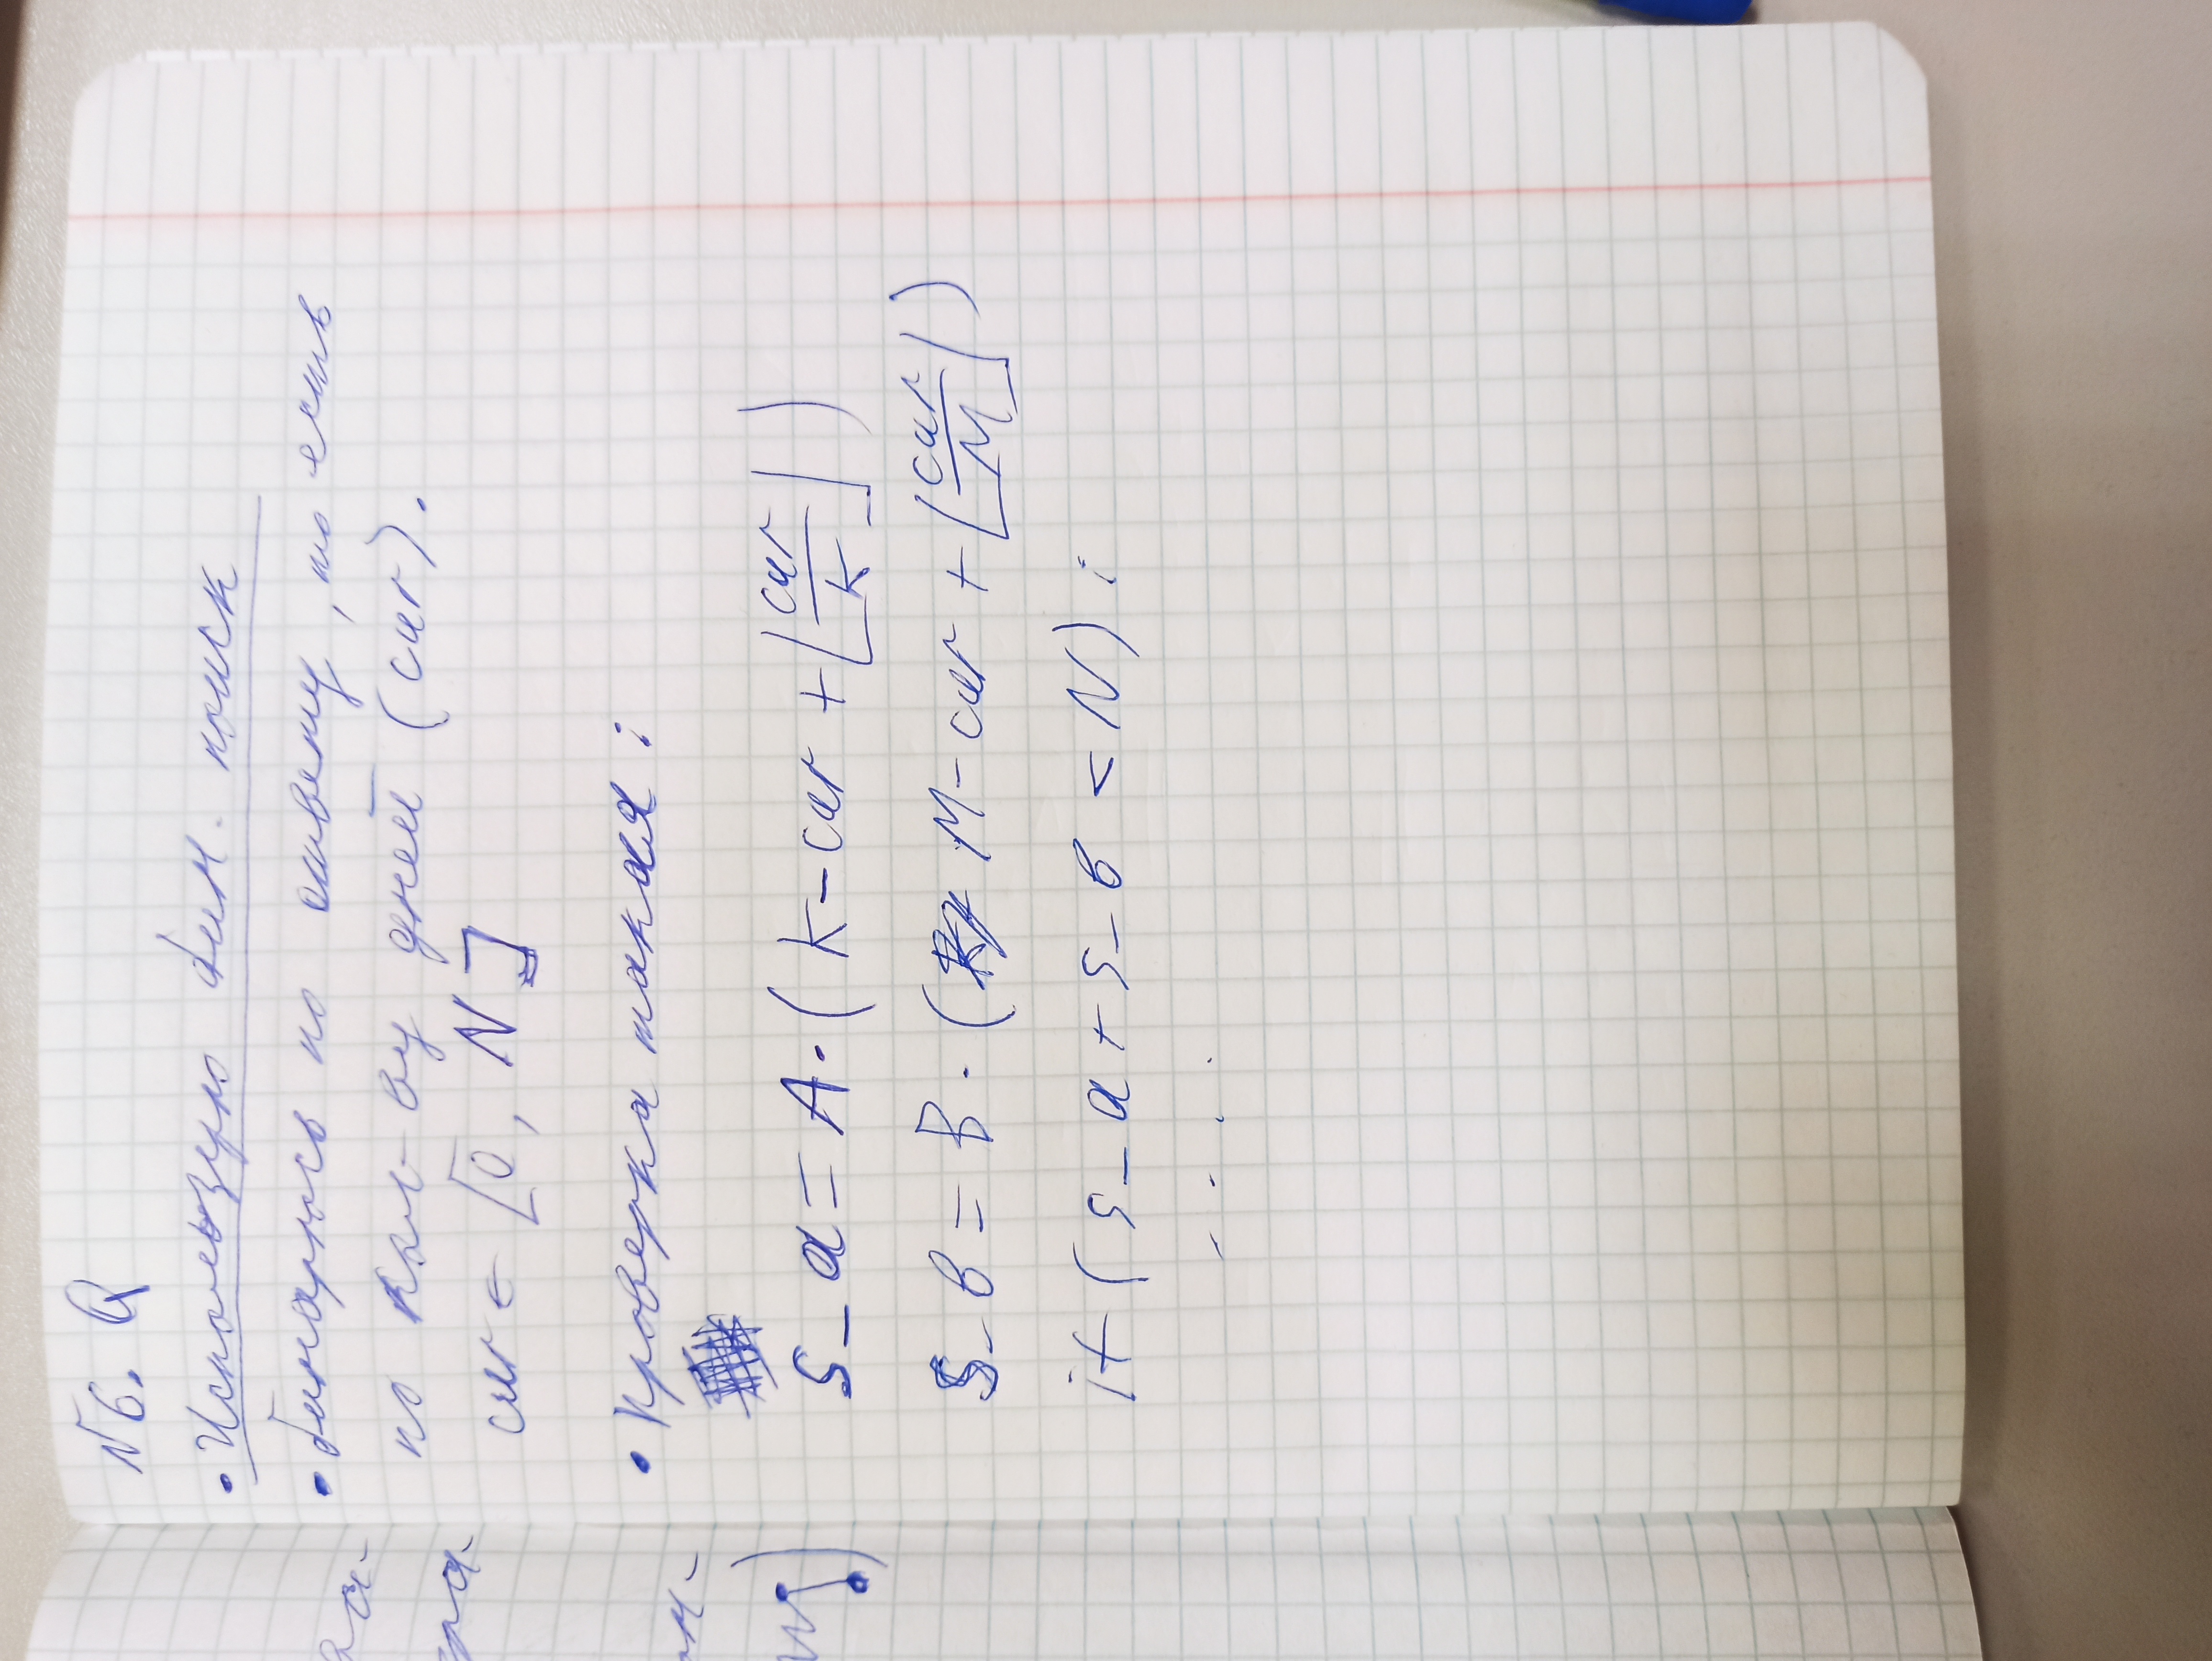 №6. Q
• Использую бин. поиск
• бинарюсь по ответу, то есть
по кол-ву дней (cur).
cur ∈ [0, N]
• Проверка такая:
s_a = A·(K-cur + ⌊cur/K⌋)
s_b = B·(M-cur + ⌊cur/M⌋)
if (s_a + s_b < N):
....